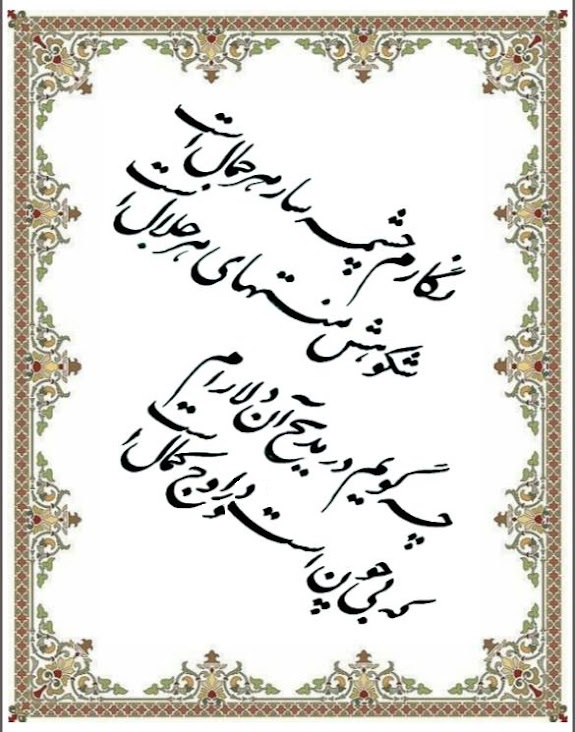 نگارم چشمه سار هر جمال است
شکوهش منتهای هر جلال است
چه گویم در مدیح آن دلارام
که بی چون است و در اوج کمال است